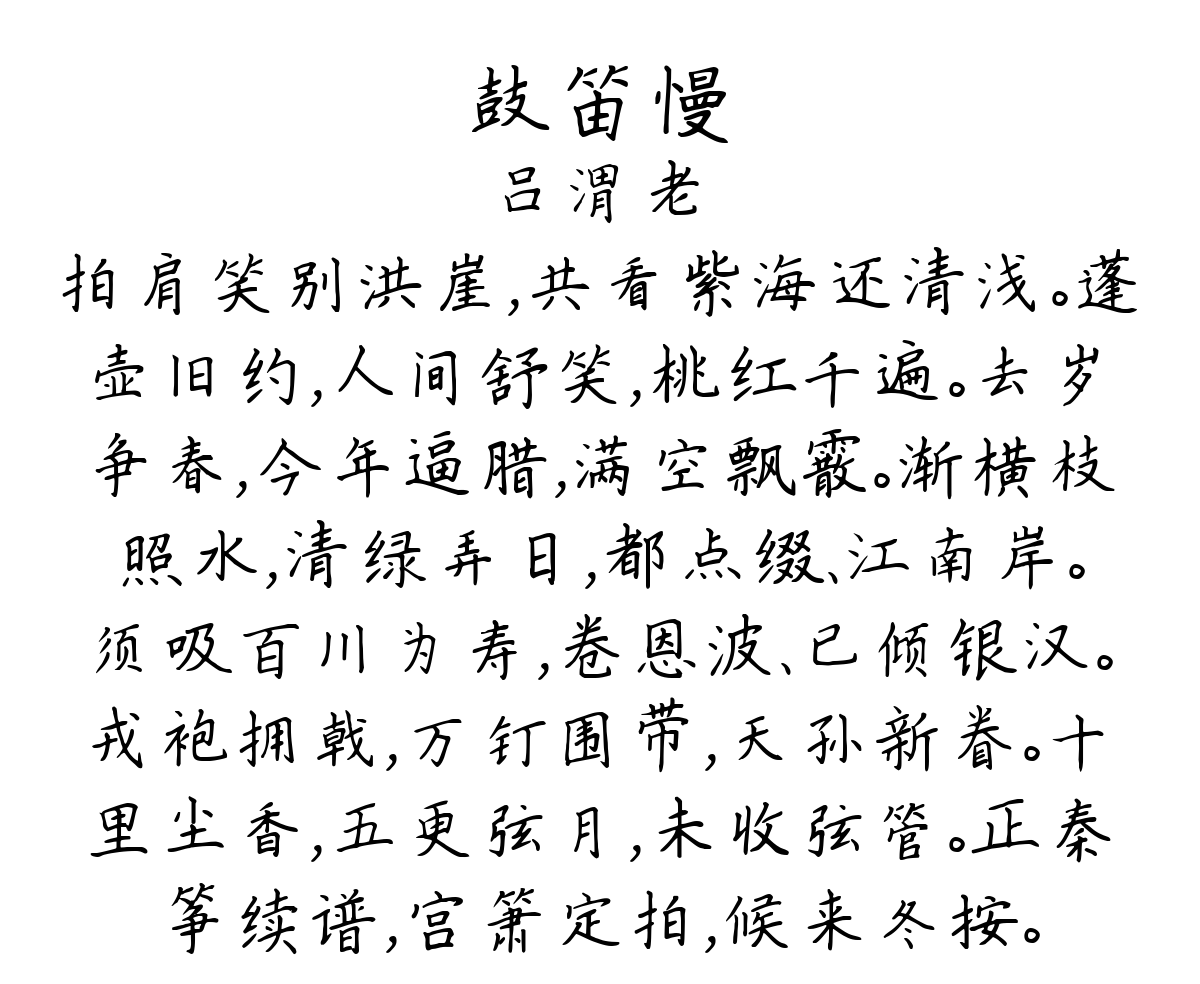 鼓笛慢
吕渭老
拍肩笑别洪崖,共看紫海还清浅。蓬
壶旧约,人间舒笑,桃红千遍。去岁
争春,今年逼腊,满空飘霰。渐横枝
照水,清绿弄日,都点缀、江南岸。
须吸百川为寿,卷恩波、已倾银汉。
戎袍拥戟,万钉围带,天孙新眷。十
里尘香,五更弦月,未收弦管。正秦
筝续谱,宫箫定拍,候来冬按。